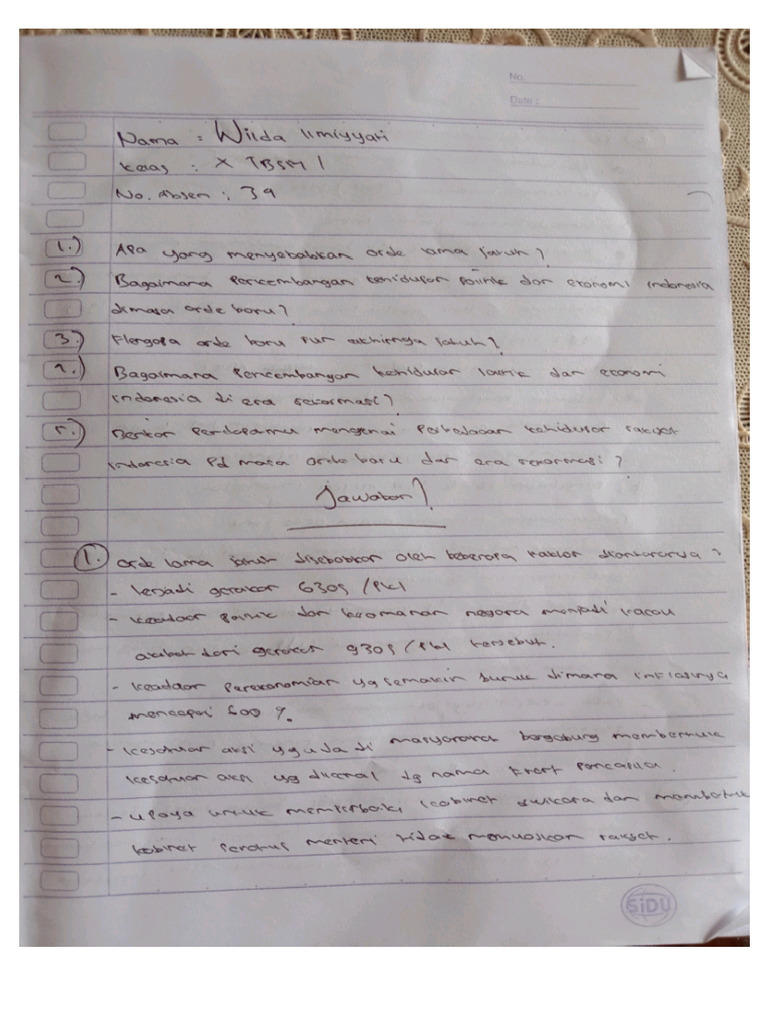 No.
Date :
Nama : Wilda Ilmiyyati
Kelas : X TBSM 1
No. Absen : 39
1.) Apa yang menyebabkan orde lama jatuh?
2.) Bagaimana Perkembangan kehidupan politik dan ekonomi Indonesia
dimasa orde baru?
3.) Mengapa orde baru pun akhirnya jatuh?
4.) Bagaimana Perkembangan kehidupan politik dan ekonomi
Indonesia di era reformasi?
5.) Berikan Pendapatmu mengenai Perbedaan kehidupan rakyat
Indonesia Pd masa orde baru dan era reformasi?
Jawaban
1. Orde lama jatuh disebabkan oleh beberapa faktor diantaranya :
- terjadi gerakan G30S /PKI
- keadaan politik dan keamanan negara menjadi kacau
akibat dari gerakan G30S /PKI tersebut.
- keadaan perekonomian yg semakin buruk dimana inflasinya
mencapai 600 %.
- kesatuan aksi yg ada di masyarakat bergabung membentuk
kesatuan aksi yg dikenal dg nama Front Pancasila.
- upaya untuk memperbaiki kabinet dwikora dan membentuk
kabinet seratus menteri tidak memuaskan rakyat.
SiDU